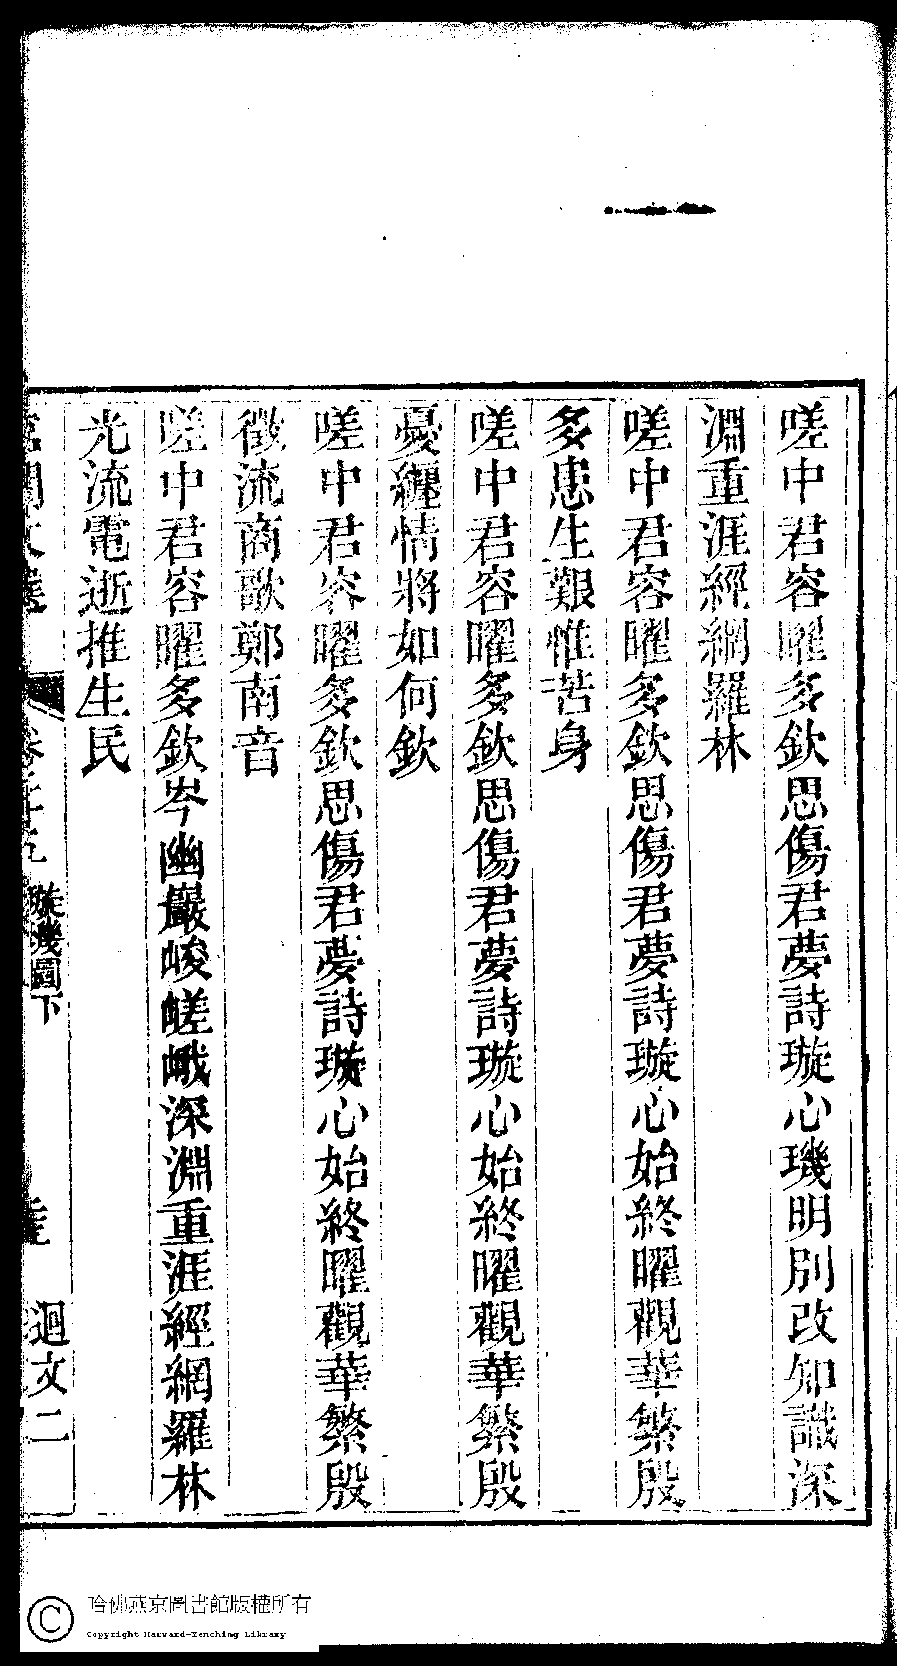 嗟中君容曜多欽思傷君夢詩璇心璣明別改知識深
淵重涯經網羅林
嗟中君容曜多欽思傷君夢詩璇心始終曜觀華繁殷
多患生艱惟苦身
嗟中君容曜多欽思傷君夢詩璇心始終曜觀華繁殷
憂纏情將如何欽
嗟中君容曜多欽思傷君夢詩璇心始終曜觀華繁殷
徵流商歌鄭南音
嗟中君容曜多欽岑幽巖峻嵯峨深淵重涯經網羅林
光流電逝推生民
璇璣圖下
迴文二
哈佛燕京圖書館版權所有
Copyright Harvard-Yenching Library